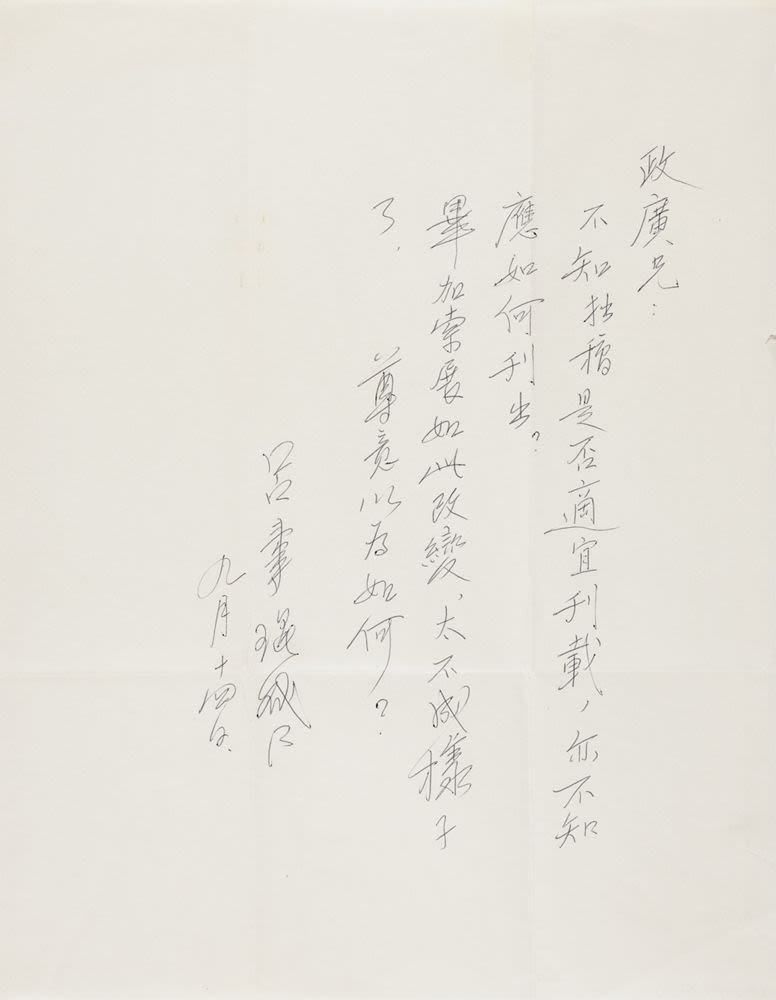 政廣兄：
不知拙稿是否適宜刊載，亦不知
應如何刊出？
畢加索展如此改變，太不成樣子
了。　　尊意以為如何？
呂
九月十四日